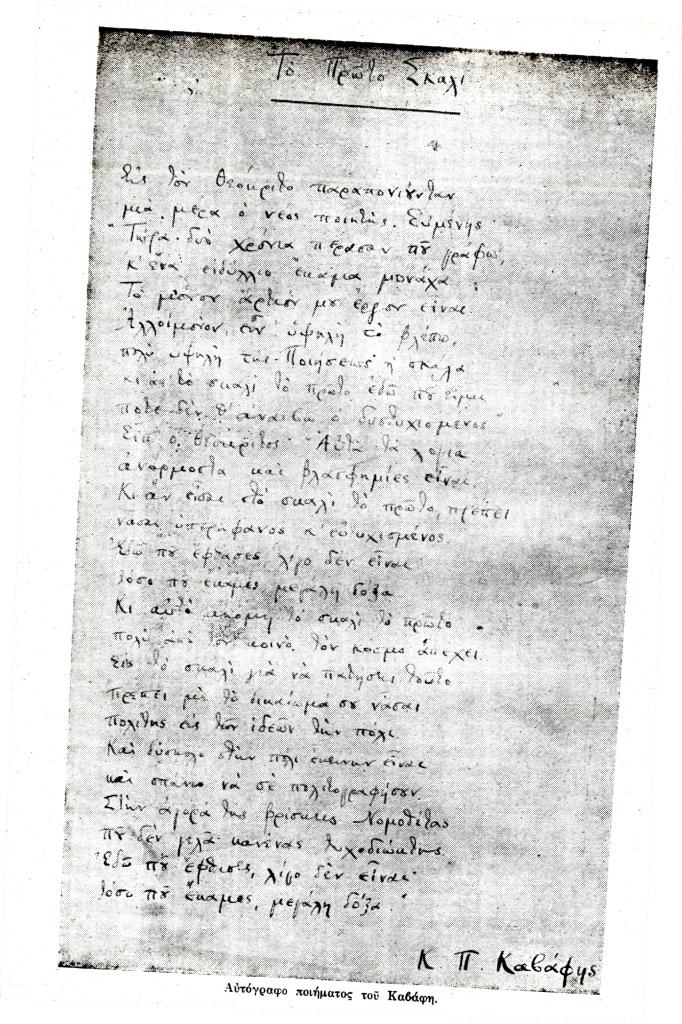 Τὸ Πρῶτο Σκαλί
Εἰς τὸν Θεόκριτο παραπονιούνταν
μιὰ μέρα ὁ νέος ποιητὴς Εὐμένης·
"Τώρα δυὸ χρόνια πέρασαν ποῦ γράφω
κ' ἕνα εἰδύλλιο ἔκαμα μονάχα.
Τὸ μόνον ἄρτιόν μου ἔργον εἶναι.
Ἀλλοίμονον, εἶν' ὑψηλὴ τὸ βλέπω,
πολὺ ὑψηλὴ τῆς Ποιήσεως ἡ σκάλα
κι ἀπ' τὸ σκαλὶ τὸ πρῶτο ἐδῶ ποῦ εἶμαι
ποτὲ δὲν θ' ἀναιβῶ ὁ δυστυχισμένος"
Εἶπ' ὁ Θεόκριτος· "Αὐτὰ τὰ λόγια
ἀνάρμοστα καὶ βλασφημίες εἶναι.
Κι ἂν εἶσαι στὸ σκαλὶ τὸ πρῶτο, πρέπει
νἆσαι ὑπερήφανος κ' εὐτυχισμένος.
Ἐδῶ ποῦ ἔφτασες, λίγο δὲν εἶναι·
τόσο ποῦ ἔκαμες, μεγάλη δόξα.
Κι αὐτὸ ἀκόμη τὸ σκαλὶ τὸ πρῶτο
πολὺ ἀπὸ τὸν κοινὸ τὸν κόσμο ἀπέχει.
Εἰς τὸ σκαλὶ γιὰ νὰ πατήσεις τοῦτο
πρέπει μὲ τὸ δικαίωμά σου νἆσαι
πολίτης εἰς τῶν ἰδεῶν τὴν πόλι.
Καὶ δύσκολο στὴν πόλι ἐκείνην εἶναι
καὶ σπάνιο νὰ σὲ πολιτογραφήσουν.
Στὴν ἀγορά της βρίσκεις Νομοθέτας
ποῦ δὲν γελᾶ κανένας τυχοδιώκτης.
Ἐδῶ ποῦ ἔφτασες, λίγο δὲν εἶναι·
τόσο ποῦ ἔκαμες, μεγάλη δόξα."
Κ. Π. Καβάφης
Αὐτόγραφο ποιήματος τοῦ Καβάφη.